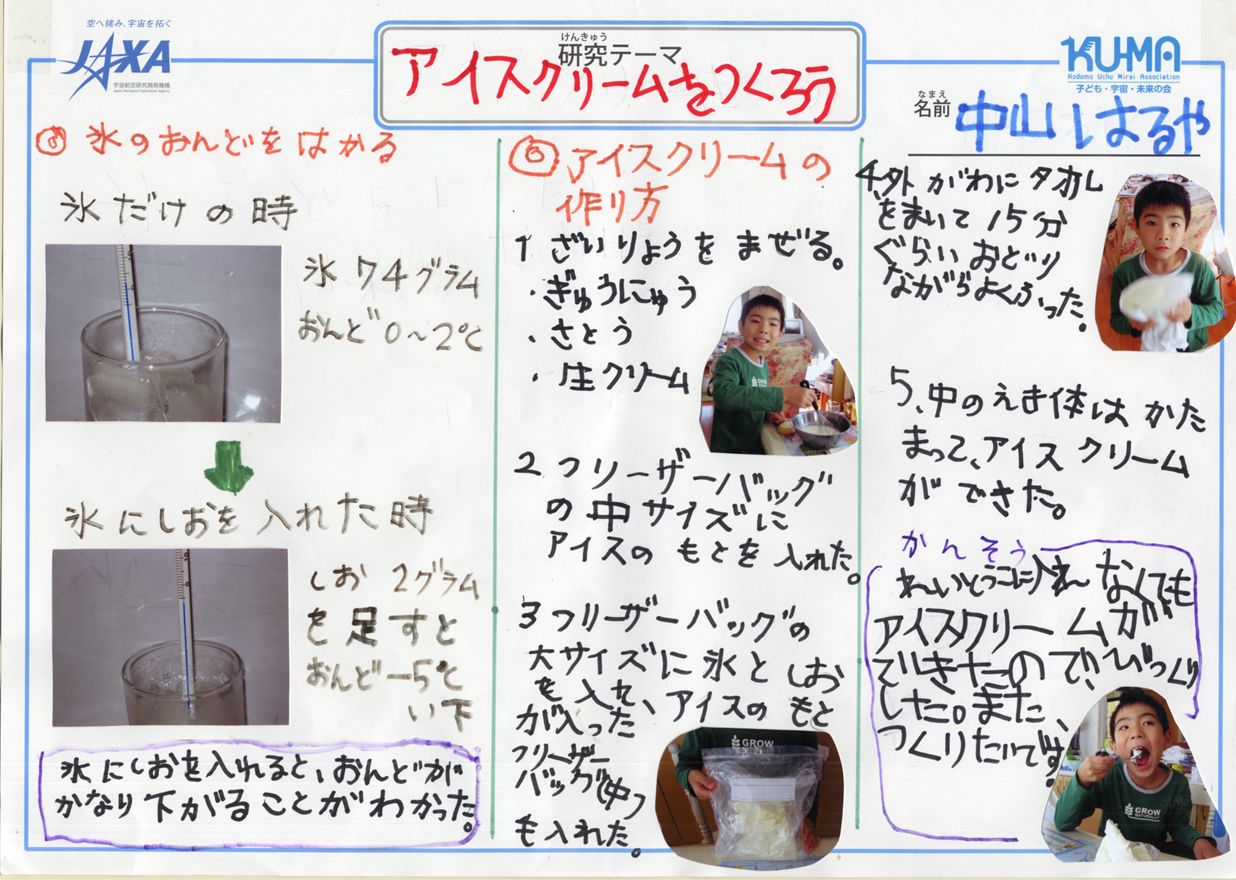 空へ挑み、宇宙を拓く
JAXA
宇宙航空研究開発機構
Japan Aerospace Exploration Agency
けんきゅう
研究テーマ
アイスクリームをつくろう
KU-MA
Kodomo Uchu Mirai Association
子ども・宇宙・未来の会
なまえ
名前 中山はるや
氷のおんどをはかる
氷だけの時
氷74グラム
おんど0〜2℃
氷にしおを入れた時
しお2グラム
を足すと
おんどー5℃
い下
氷にしおを入れると、おんどが
かなり下がることがわかった。
アイスクリームの
作り方
1 ざいりょうをまぜる。
・ぎゅうにゅう
・さとう
・生クリーム
2 フリーザーバッグ
の中サイズに
アイスのもとを入れた。
3 フリーザーバッグの
大サイズに氷としお
を入れ、アイスのもと
が入った
フリーザー
バッグ(中)
も入れた。
GROW
4、外がわにタオル
をまいて15分
ぐらいおどり
ながらよくふった。
5、中のえき体はかた
まって、アイスクリーム
ができた。
かんそう
れいとうこに入れなくても
アイスクリームが
できたので、びっくり
した。また、
つくりたいです。
GROW
NATURALLY